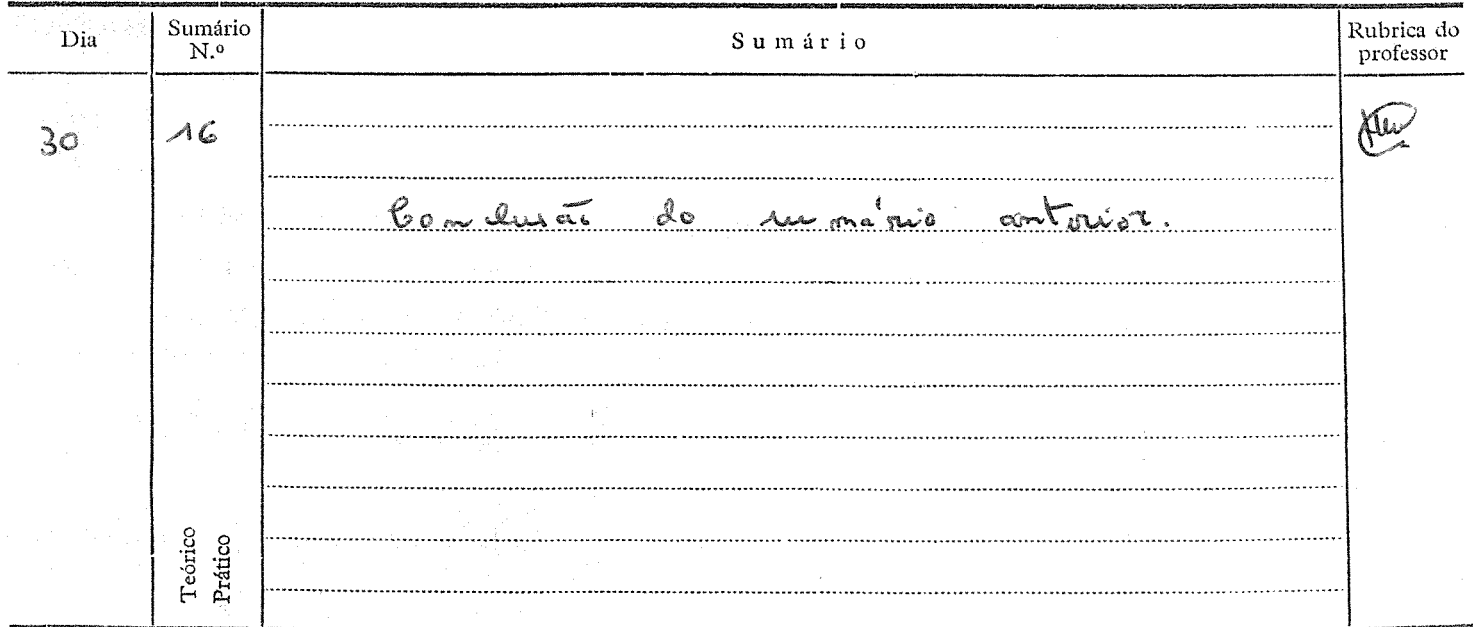 Dia Sumário N.º Sumário Rubrica do professor
30 16
Conclusão do sumário anterior.
Teórico
Prático